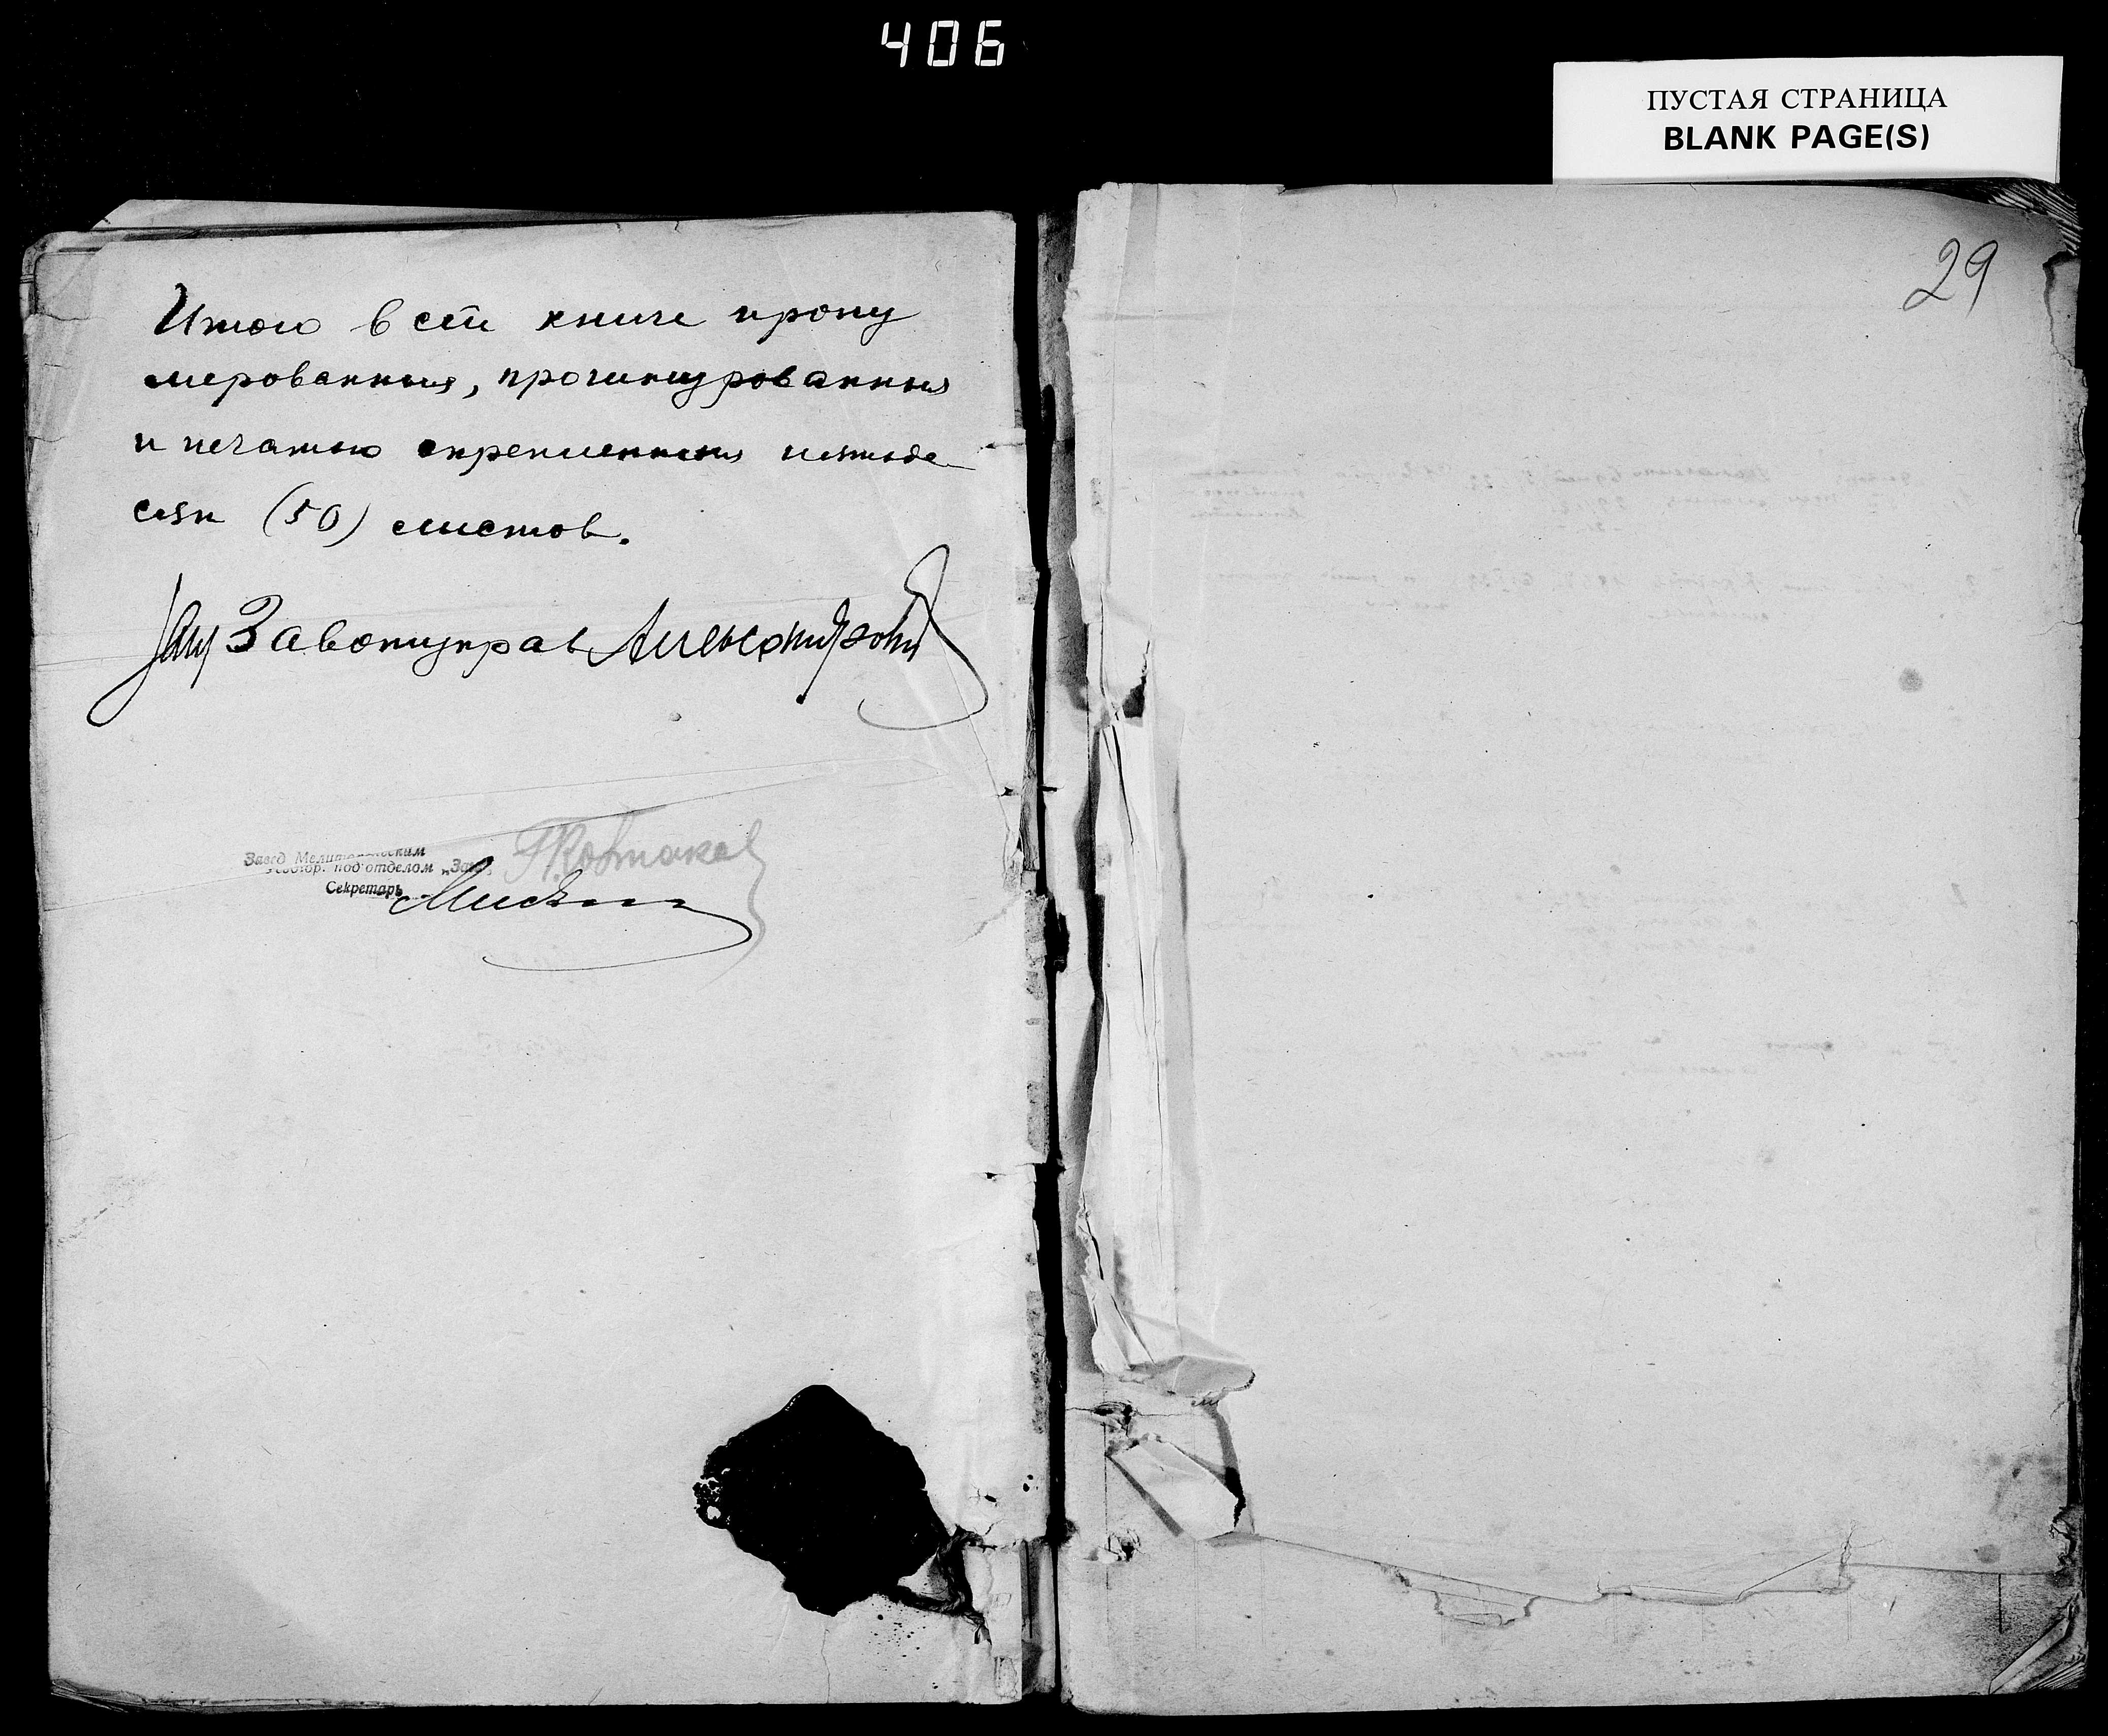 406
ПУСТАЯ СТРАНИЦА
BLANK PAGE(S)
Итого в сей книге прону
мерованных, прошнурованных
и печатью скрепленных пятьде
сят (50) листов.
Завотуправ
Завед Мелитопольским
под'отделом „Загс"
Секретарь
29